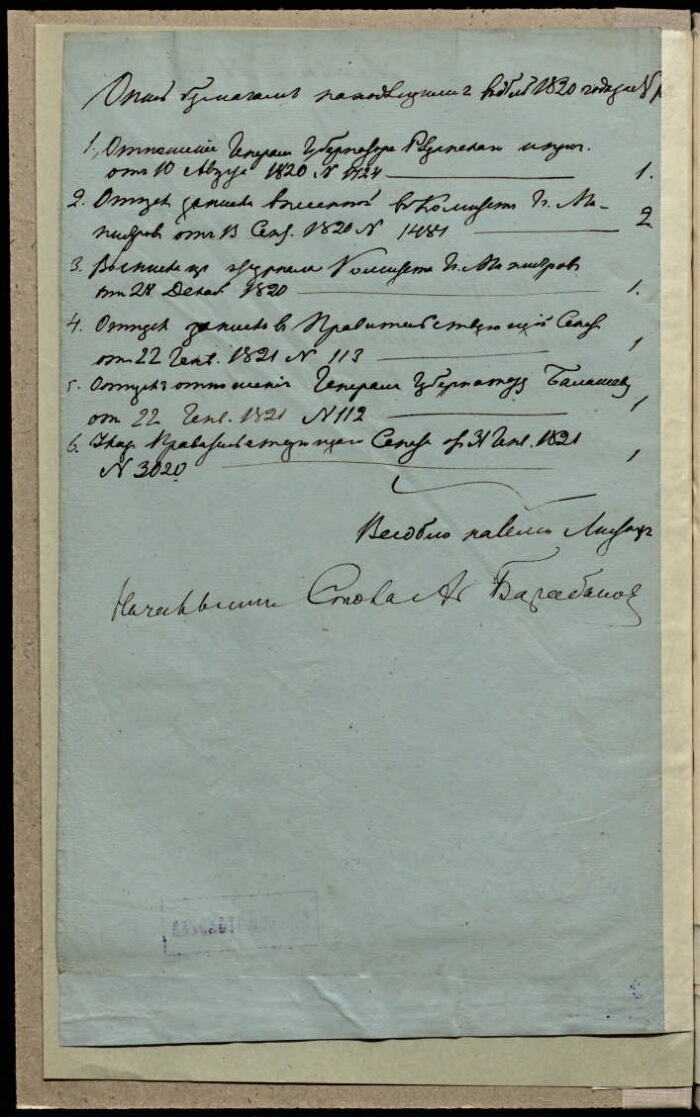 Опись бумагамъ находящимся въ дѣлѣ 1820 года за №
1. Отношеніе Генерал Губернатора Рязанскаго и проч.
отъ 10 Августа 1820 № 1724 1.
2. Отпускъ записки внесенной въ Комитетъ Гг. Ми-
нистровъ отъ 13 Сент. 1820 № 1481 2
3. Выписка изъ журнала Комитета Гг. Министровъ
отъ 28 Декаб. 1820 1.
4. Отпускъ записки въ Правительствующій Сенатъ
отъ 22 Генв. 1821 № 113 1
5. Отпускъ отношенія Генерал Губернатору Балашеву
от 22 Генв. 1821 №112 1
6. Указ Правительствующаго Сената от 31 Генв. 1821
№ 3020 1
Начальникъ Стола А Барабановъ